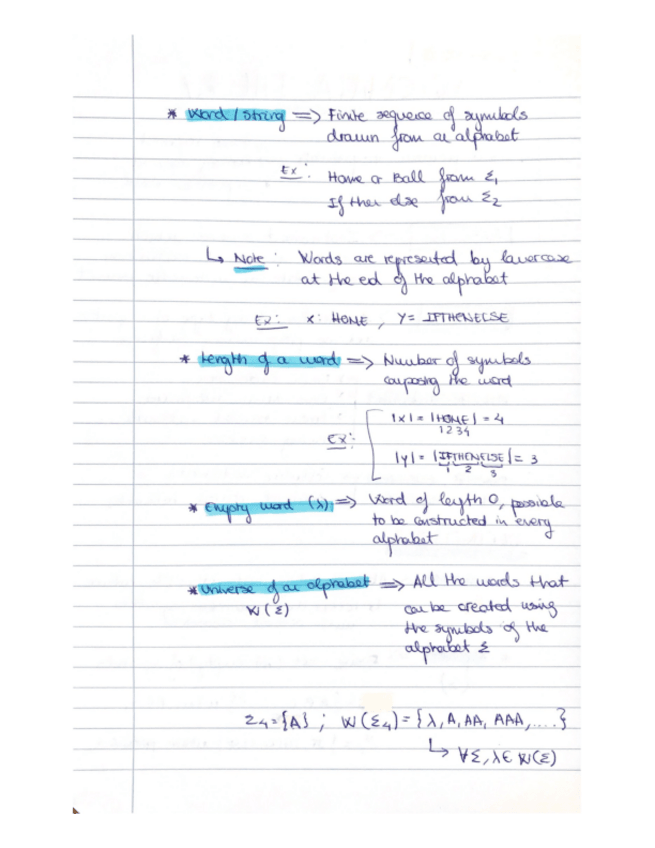 * Word / String => Finite sequence of symbols
drawn from an alphabet
Ex: Home or Ball from Σ1
If then else from Σ2
↳ Note: Words are represented by lowercase
at the end of the alphabet
Ex: X: HOME, Y= IFTHENELSE
* Length of a word => Number of symbols
composing the word
|X| = |HOME| = 4
1 2 3 4
Ex:
|Y| = |IFTHENELSE| = 3
1 2 3
* Empty word (λ) => Word of length 0, possible
to be constructed in every
alphabet
* Universe of an alphabet => All the words that
W(Σ) can be created using
the symbols of the
alphabet Σ
Σ4={A} ; W(Σ4)={λ, A, AA, AAA, ....}
↳ ∀Σ, λ∈ W(Σ)